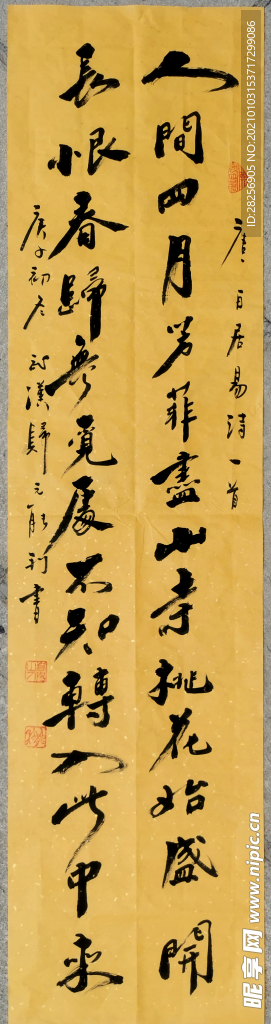 唐白居易诗一首
人間四月芳菲盡山寺桃花始盛開
長恨春歸無覓處不知轉入此中來
庚子初冬
武漢歸元能利書
ID:28256905 NO:20210103153717299086
昵享网 www.nipic.cn